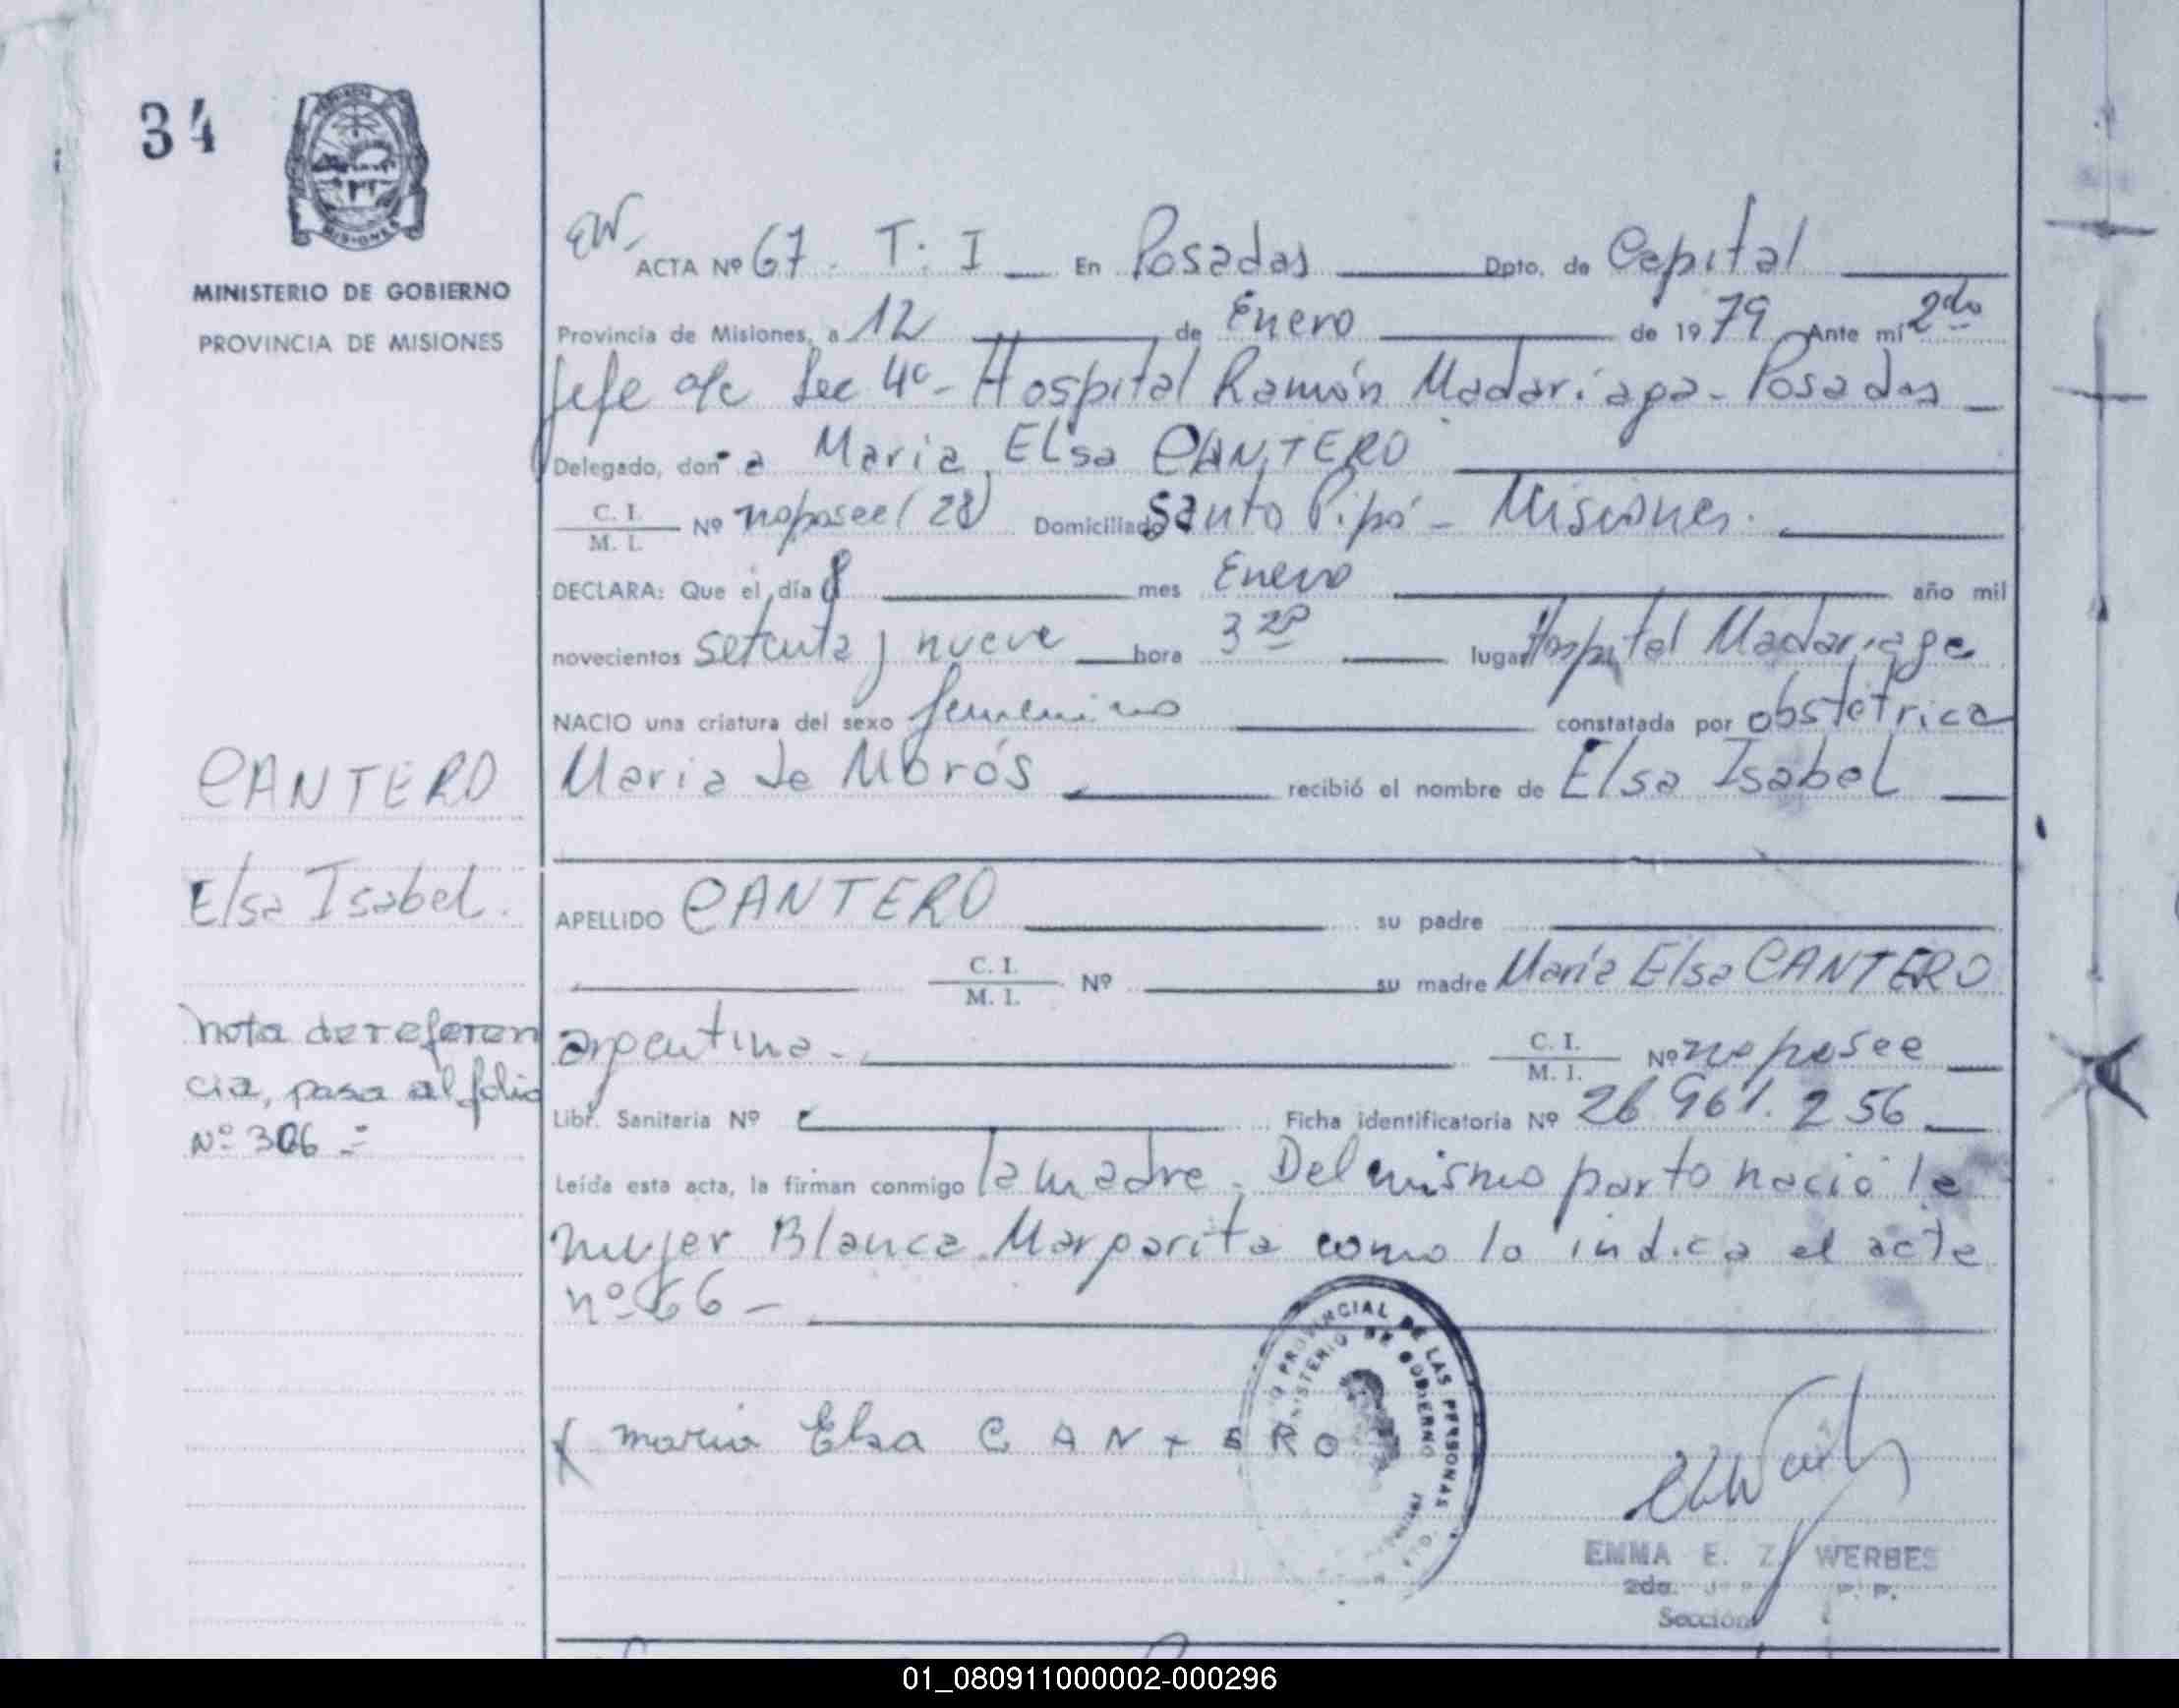 34
MISIONES
MINISTERIO DE GOBIERNO
PROVINCIA DE MISIONES
CANTERO
Elsa Isabel.
nota de referen
cia, pasa al folio
Nº 306 =
EW.
ACTA Nº 67 - T: I En Posadas Dpto. de Capital
Provincia de Misiones, a 12 de Enero de 1979 Ante mí 2do
Jefe de Sec 4º - Hospital Ramón Madariaga - Posadas
Delegado, don a Maria Elsa CANTERO
C. I. / M. I. Nº no posee (28) Domiciliado Santo Pipó - Misiones.
DECLARA: Que el día 8 mes Enero año mil
novecientos setenta y nueve hora 3 20 lugar Hospital Madariaga
NACIO una criatura del sexo femenino constatada por obstétrica
Maria de Morós recibió el nombre de Elsa Isabel
APELLIDO CANTERO su padre
C. I. / M. I. Nº su madre María Elsa CANTERO
argentina - C. I. / M. I. Nº no posee
Libr. Sanitaria Nº Ficha identificatoria Nº 26 961. 256
Leída esta acta, la firman conmigo la madre. Del mismo parto nació la
mujer Blanca Margarita como lo indica el acta
nº 66 -
PROVINCIAL DE LAS PERSONAS
MINISTERIO DE GOBIERNO
X maria Elsa CANTERO
EMMA E. Z. WERBES
2do. J P. P.
Sección
01_080911000002-000296